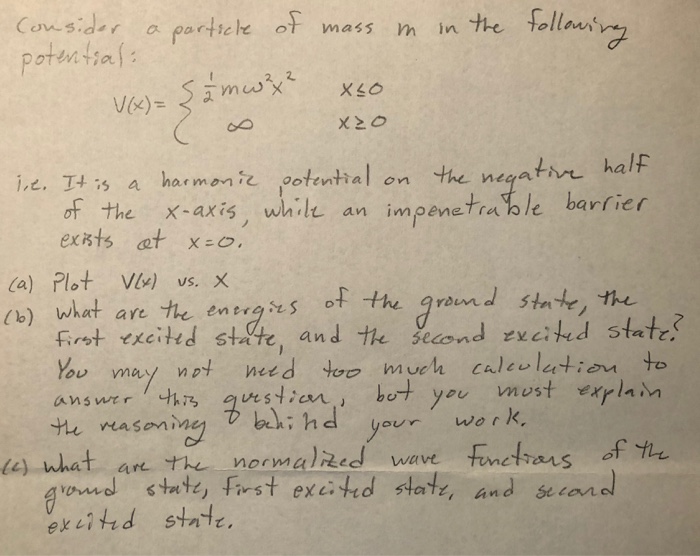 Consider a particle of mass m in the following
potential:
V(x) = { ½mω²x² x≤0
∞ x≥0
i.e. It is a harmonic potential on the negative half
of the x-axis, while an impenetrable barrier
exists at x=0.
(a) Plot V(x) vs. x
(b) what are the energies of the ground state, the
first excited state, and the second excited state?
You may not need too much calculation to
answer this question, but you must explain
the reasoning behind your work.
(c) what are the normalized wave functions of the
ground state, first excited state, and second
excited state.